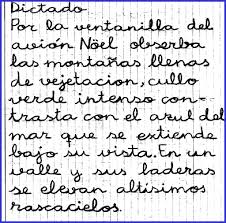 Dictado.
Por la ventanilla del
avión Nöel obserba
las montañas llenas
de vejetacion, cullo
verde intenso con-
trasta con el azul del
mar que se extiende
bajo su vista. En un
valle y sus laderas
se elevan altísimos
rascacielos.